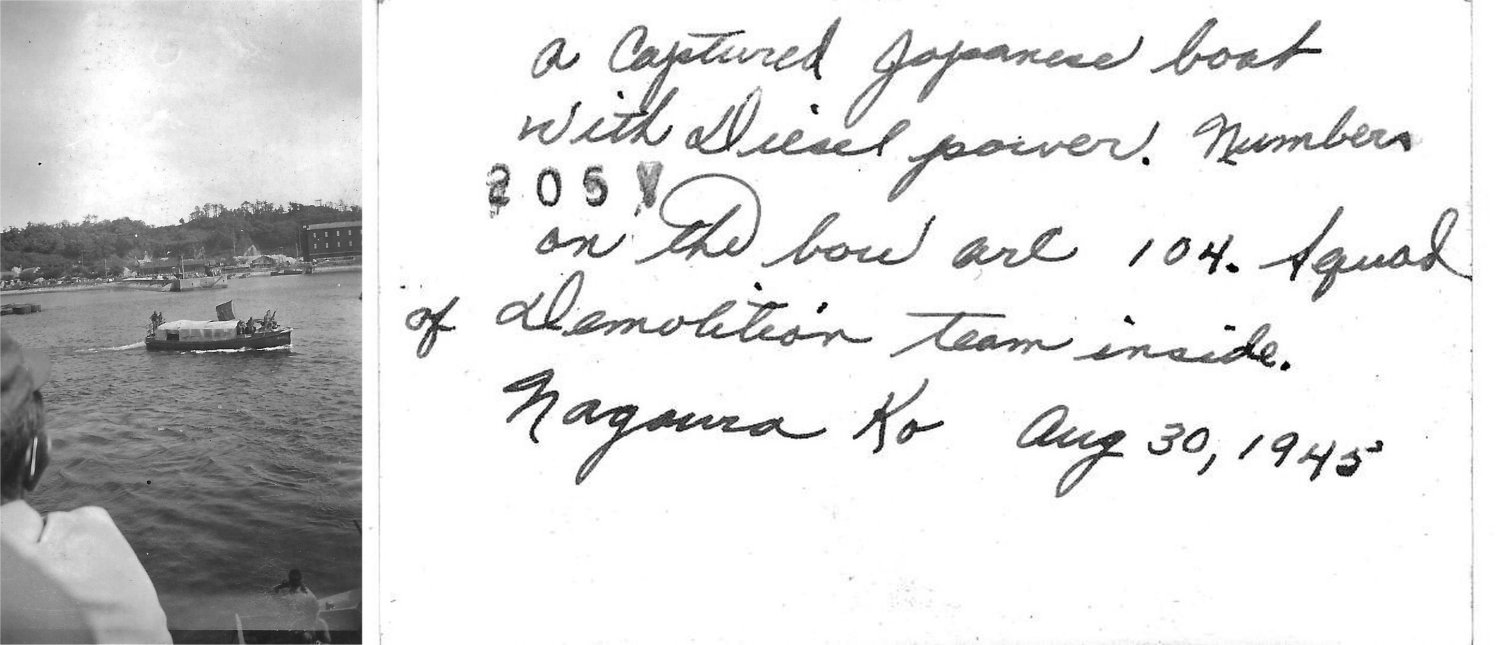 a Captured Japanese boat
with Diesel power. Numbers
205
on the bow are 104. Squad
of Demolition team inside.
Nagoura Ko Aug 30, 1945